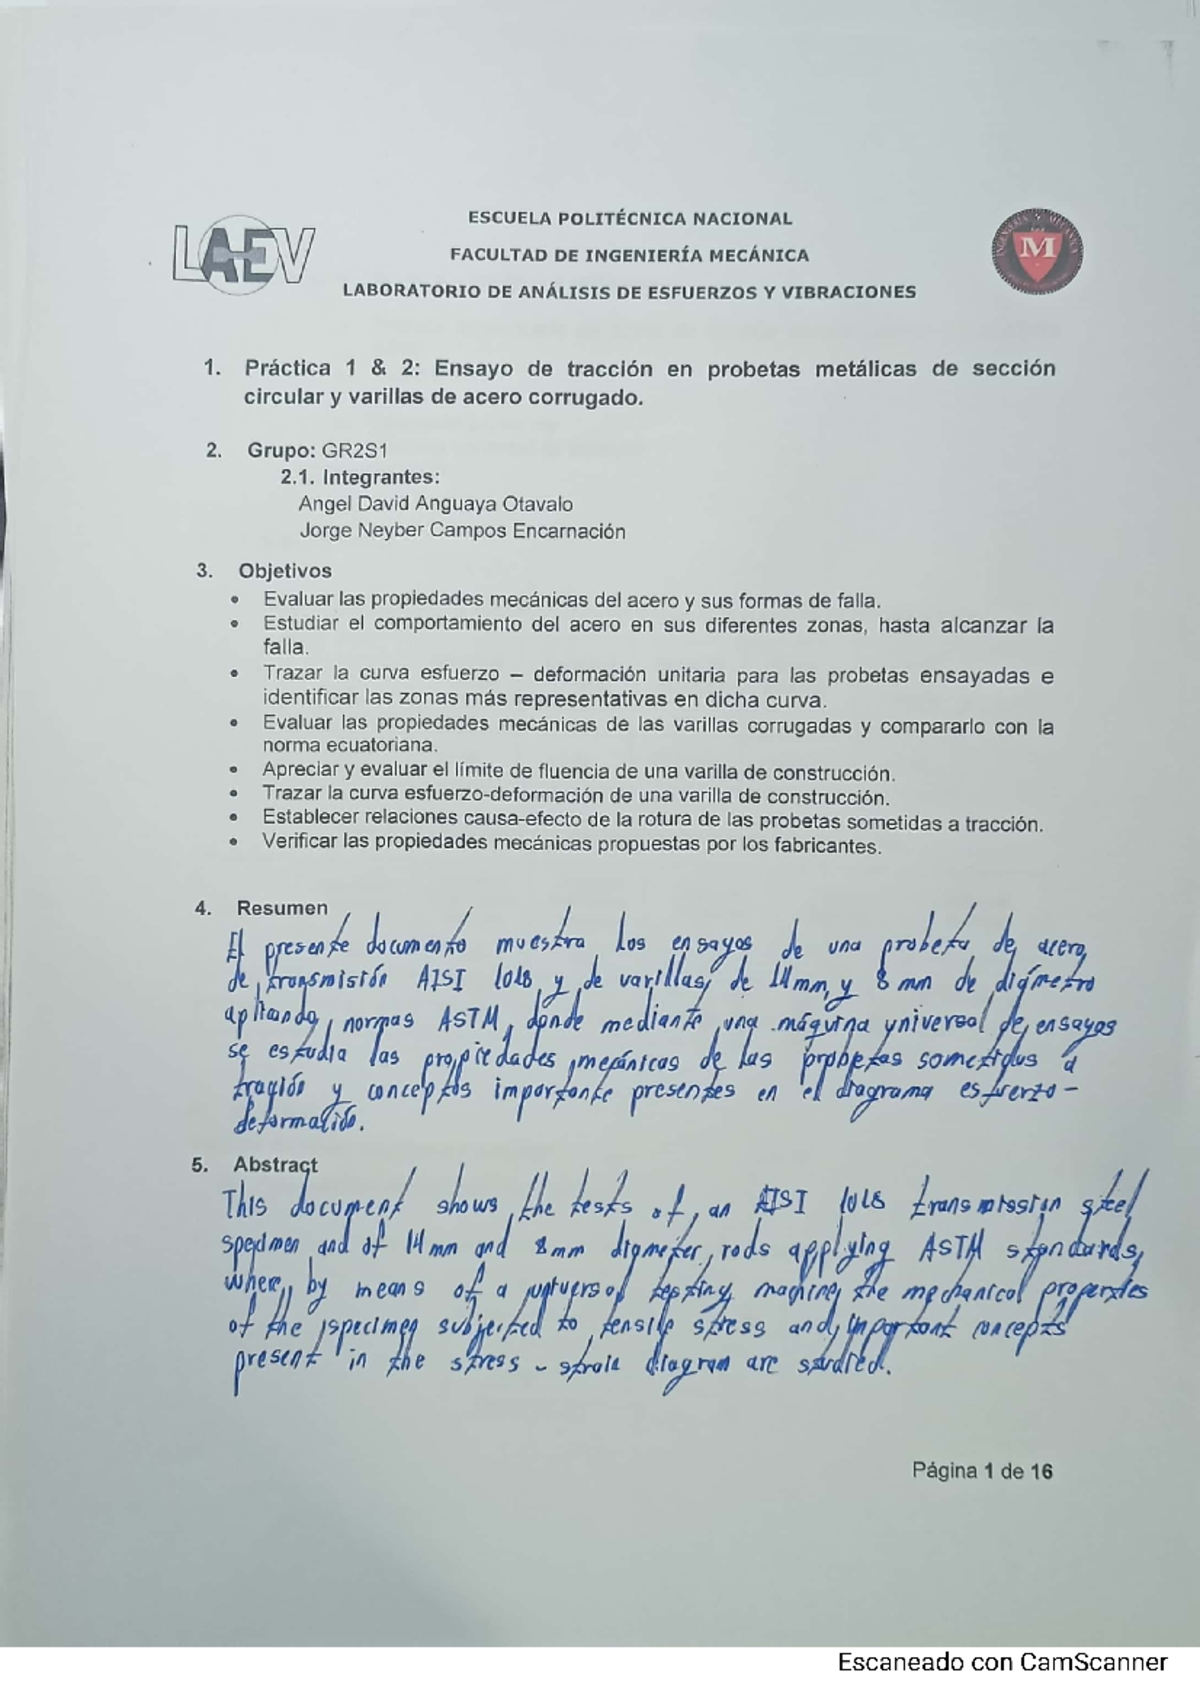 ESCUELA POLITÉCNICA NACIONAL
LAEV
FACULTAD DE INGENIERÍA MECÁNICA
M
LABORATORIO DE ANÁLISIS DE ESFUERZOS Y VIBRACIONES
1. Práctica 1 & 2: Ensayo de tracción en probetas metálicas de sección
circular y varillas de acero corrugado.
2. Grupo: GR2S1
2.1. Integrantes:
Angel David Anguaya Otavalo
Jorge Neyber Campos Encarnación
3. Objetivos
• Evaluar las propiedades mecánicas del acero y sus formas de falla.
• Estudiar el comportamiento del acero en sus diferentes zonas, hasta alcanzar la
falla.
• Trazar la curva esfuerzo – deformación unitaria para las probetas ensayadas e
identificar las zonas más representativas en dicha curva.
• Evaluar las propiedades mecánicas de las varillas corrugadas y compararlo con la
norma ecuatoriana.
• Apreciar y evaluar el límite de fluencia de una varilla de construcción.
• Trazar la curva esfuerzo-deformación de una varilla de construcción.
• Establecer relaciones causa-efecto de la rotura de las probetas sometidas a tracción.
• Verificar las propiedades mecánicas propuestas por los fabricantes.
4. Resumen
El presente documento muestra los ensayos de una probeta de acero
de transmisión AISI 1018 y de varillas de 14mm y 8 mm de diámetro
aplicando normas ASTM, donde mediante una máquina universal de ensayos
se estudia las propiedades mecánicas de las probetas sometidas a
tración y conceptos importante presentes en el diagrama esfuerzo-
deformación.
5. Abstract
This document shows the tests of an AISI 1018 transmission steel
specimen and of 14mm and 8mm diameter rods applying ASTM standards,
where, by means of a universal testing machine the mechanical properties
of the specimen subjected to tensile stress and important concepts
present in the stress - strain diagram are studied.
Página 1 de 16
Escaneado con CamScanner